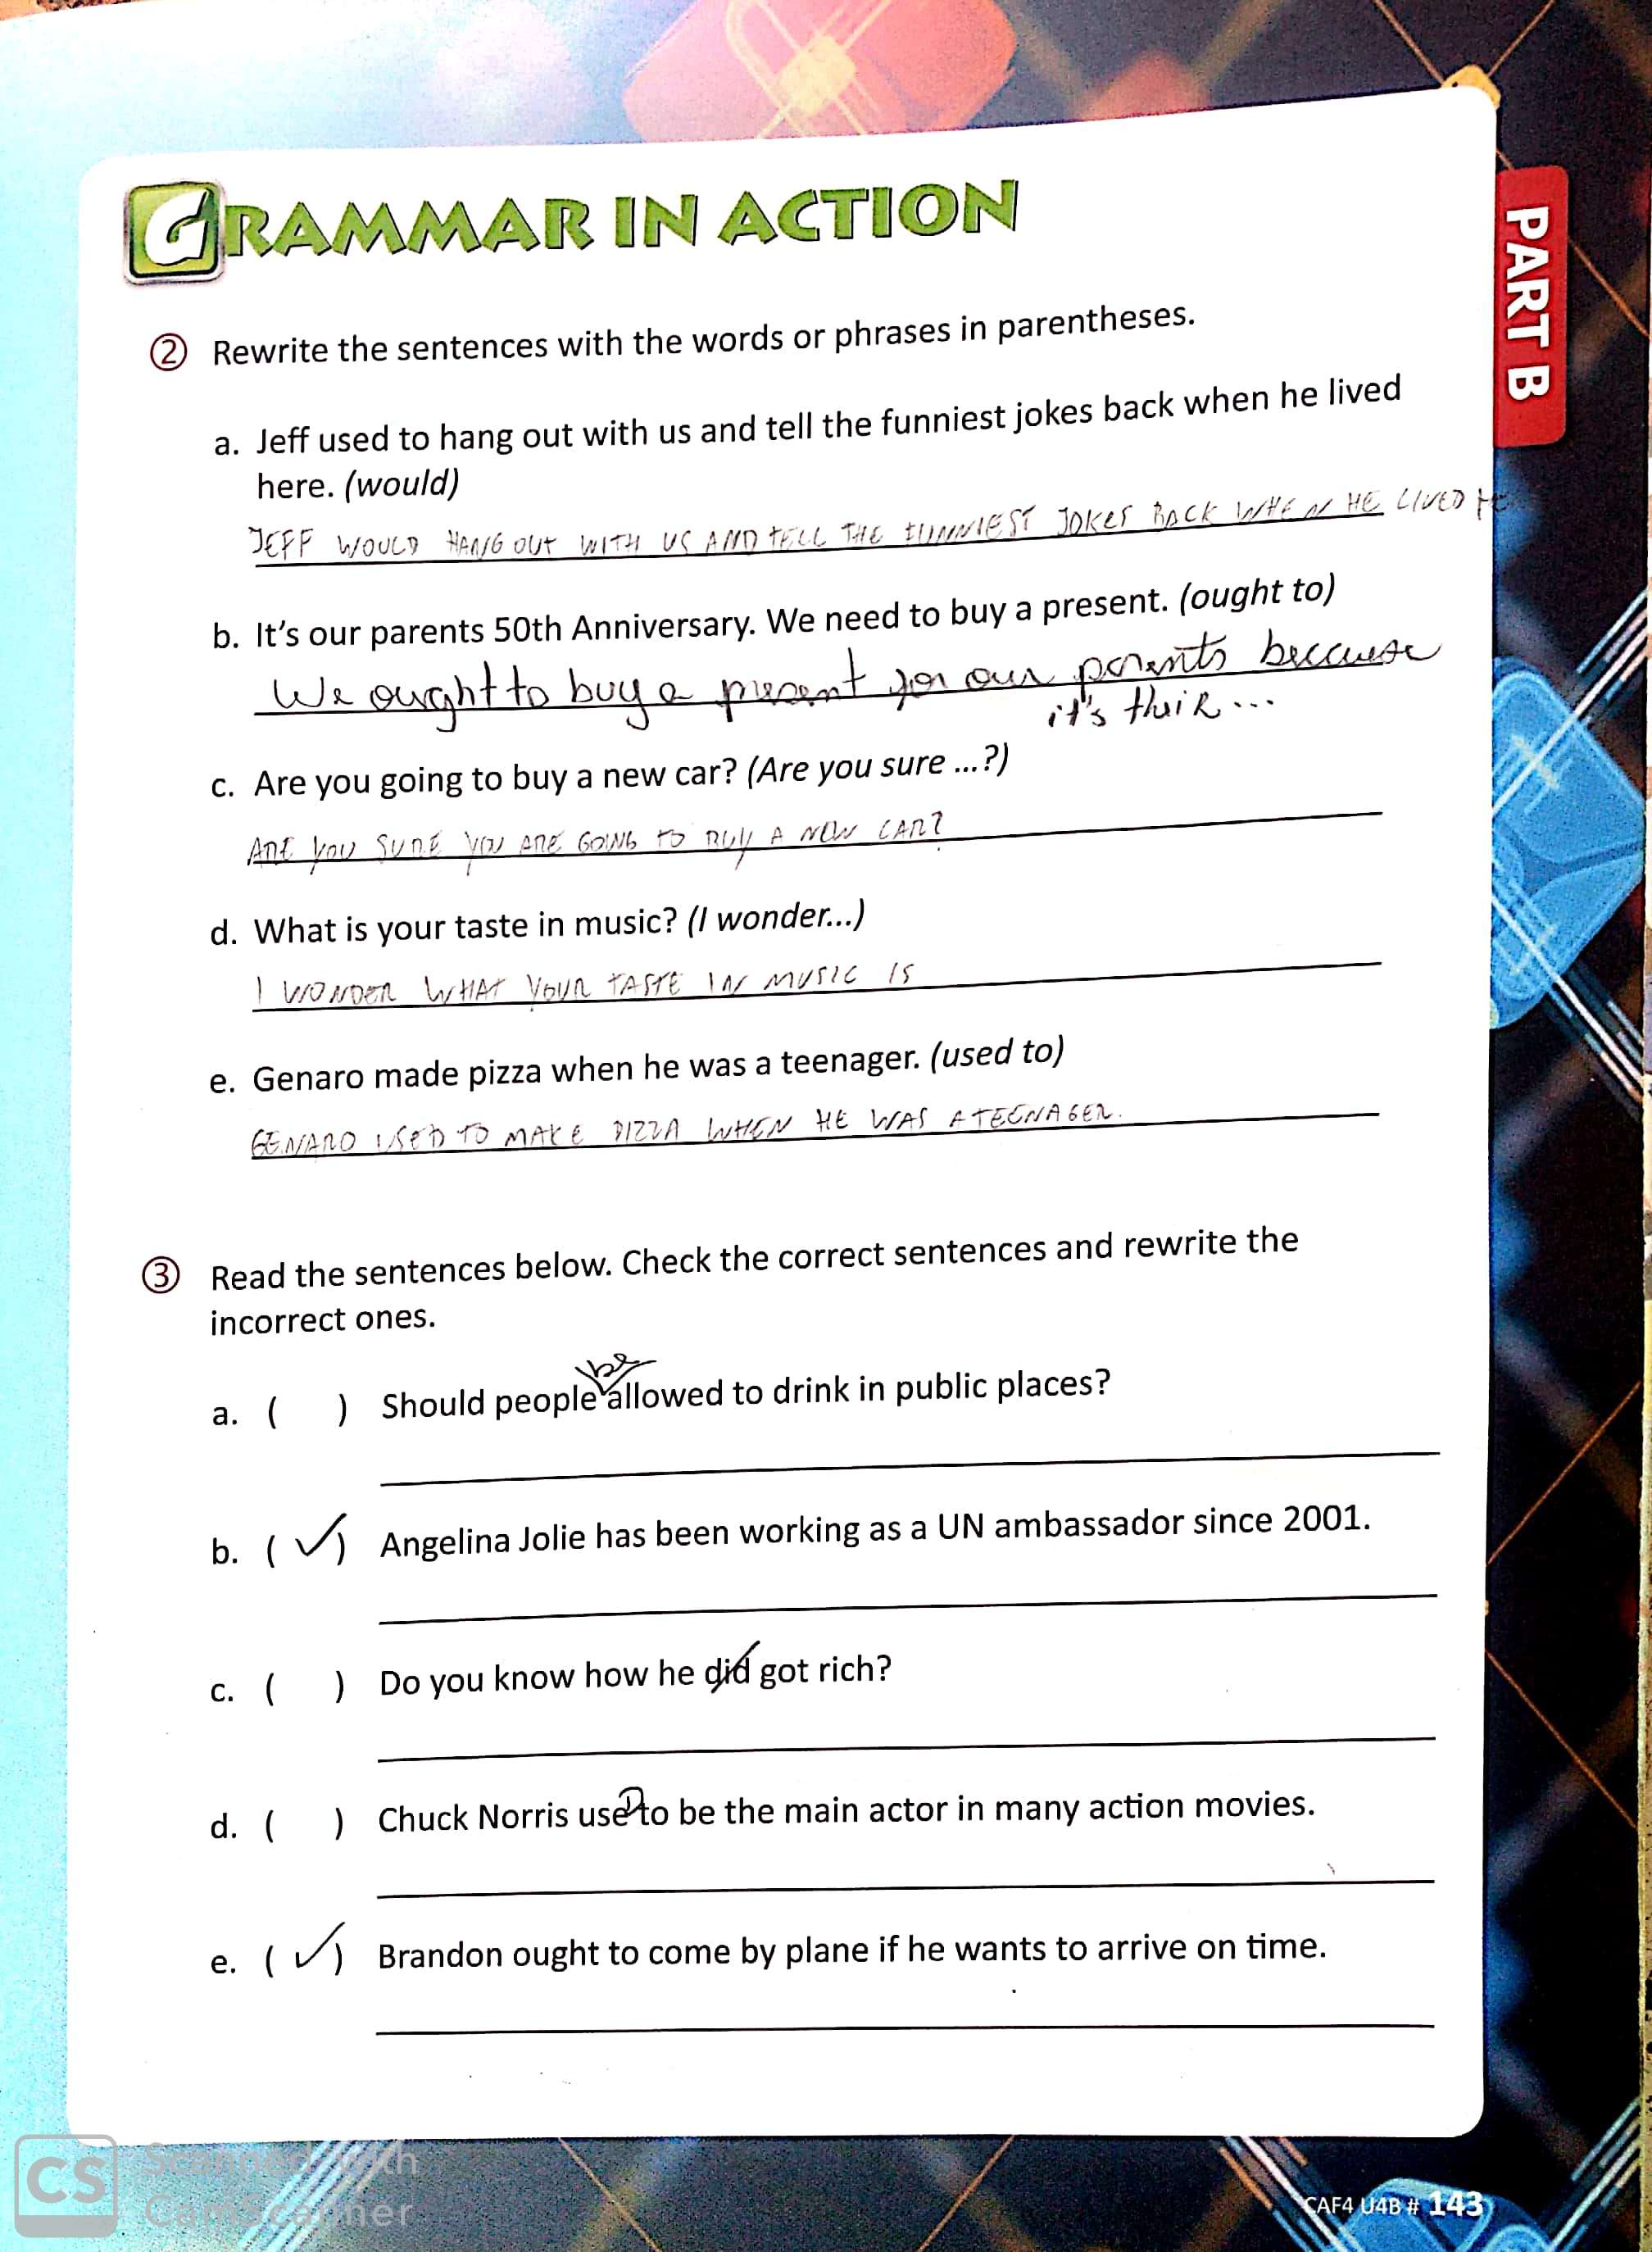 GRAMMAR IN ACTION
PART B
② Rewrite the sentences with the words or phrases in parentheses.
a. Jeff used to hang out with us and tell the funniest jokes back when he lived
here. (would)
JEFF WOULD HANG OUT WITH US AND TELL THE FUNNIEST JOKES BACK WHEN HE LIVED HE
b. It's our parents 50th Anniversary. We need to buy a present. (ought to)
We ought to buy a present for our parents because
it's their...
c. Are you going to buy a new car? (Are you sure ...?)
ARE YOU SURE YOU ARE GOING TO BUY A NEW CAR?
d. What is your taste in music? (I wonder...)
I WONDER WHAT YOUR TASTE IN MUSIC IS
e. Genaro made pizza when he was a teenager. (used to)
GENARO USED TO MAKE PIZZA WHEN HE WAS A TEENAGER.
③ Read the sentences below. Check the correct sentences and rewrite the
incorrect ones.
be
a. ( ) Should people allowed to drink in public places?
b. (✓) Angelina Jolie has been working as a UN ambassador since 2001.
c. ( ) Do you know how he did got rich?
d. ( ) Chuck Norris useD to be the main actor in many action movies.
e. (✓) Brandon ought to come by plane if he wants to arrive on time.
CS Scanned with
CamScanner
CAF4 U4B # 143